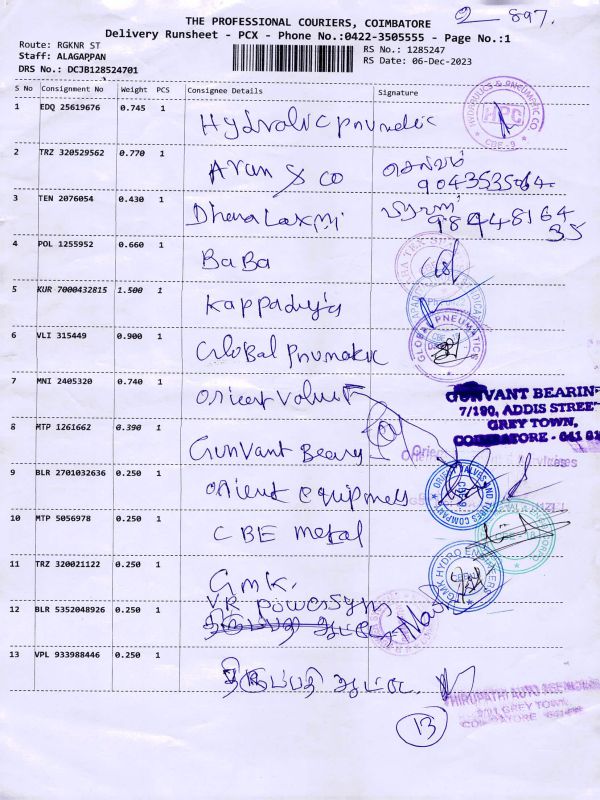 THE PROFESSIONAL COURIERS, COIMBATORE
2 897.
Delivery Runsheet - PCX - Phone No.:0422-3505555 - Page No.:1
Route: RGKNR ST
RS No.: 1285247
Staff: ALAGAPPAN
RS Date: 06-Dec-2023
DRS No.: DCJB128524701
S No Consignment No Weight PCS Consignee Details Signature
1 EDQ 25619676 0.745 1 Hydralic pnumatic
HYDRAULICS & PNEUMATIC CO
HPC
CBE-9
2 TRZ 320529562 0.770 1 Arun & co செல்வம்
9043535064
3 TEN 2076054 0.430 1 Dhana Laxmi
98448164
35
4 POL 1255952 0.660 1 BaBa
5 KUR 7000432815 1.500 1 Kappadiya
6 VLI 315449 0.900 1 Global pnumatic
GLOBAL PNEUMATICS
7 MNI 2405320 0.740 1 Orient Value
GUNVANT BEARIN
7/190, ADDIS STREE
GREY TOWN,
COIMBATORE - 641 01
8 MTP 1261662 0.390 1 Gunvant Bearing
9 BLR 2701032636 0.250 1 orient equipmets
ORIENT VALVES AND TUBES COMPANY
10 MTP 5056978 0.250 1 CBE metal
11 TRZ 320021122 0.250 1 GMK.
GMK HYDRO ENGINEERS
12 BLR 5352048926 0.250 1 VR powersyms
13 VPL 933988446 0.250 1 திருப்பதி ஆட்டோ
THIRUPATHI AUTO AGENCIES
2/91 GREY TOWN,
COIMBATORE
13